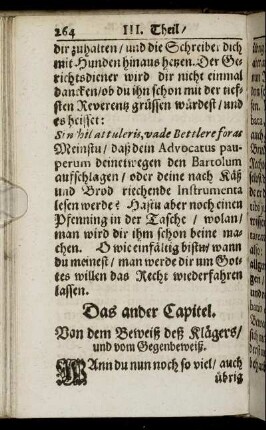 264 III. Theil/
dir zuhalten/ und die Schreiber dich
mit Hunden hinaus hetzen. Der Ge-
richtsdiener wird dir nicht einmal
dancken/ ob du ihn schon mit der tief-
sten Reverentz grüssen würdest/ und
es heisset:
Si nihil attuleris, vade Bettlere foras
Meinstu/ daß dein Advocatus pau-
perum deinetwegen den Bartolum
aufschlagen/ oder deine nach Käß
und Brod riechende Instrumenta
lesen werde? Hastu aber noch einen
Pfenning in der Tasche/ wolan/
man wird dir ihm schon beine ma-
chen. O wie einfältig bistu/ wann
du meinest/ man werde dir um Got-
tes willen das Recht wiederfahren
lassen.
Das ander Capitel.
Von dem Beweiß deß Klägers/
und vom Gegenbeweiß.
WAnn du nun noch so viel/ auch
übrig